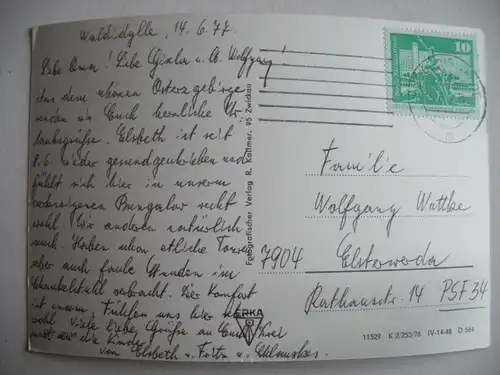 Waldidylle, 14.6.77
Liebe Oma! Liebe Gisela u. Wolfgang!
Aus dem schönen Osterzgebirge
senden wir Euch herzliche Ur-
laubsgrüße. Elsbeth ist seit
8.6. wieder gesundgeschrieben und
fühlt sich hier in unserem
Bungalow recht
wohl. Wir anderen natürlich
auch. Haben schon etliche Touren,
aber auch faule Stunden im
Schaukelstuhl verbracht. Der Komfort
ist enorm. Fühlen uns hier sehr
wohl. Viele liebe Grüße an Euch
und die Kinder
von Elsbeth u. Fritz
Fotografischer Verlag R. Kallmer, 95 Zwickau
ERKA
10
Familie
Wolfgang Wuttke
7904 Elsterwerda
Rathausstr. 14 PSF 34
11529 K 2/255/76 IV-14-48 D 564